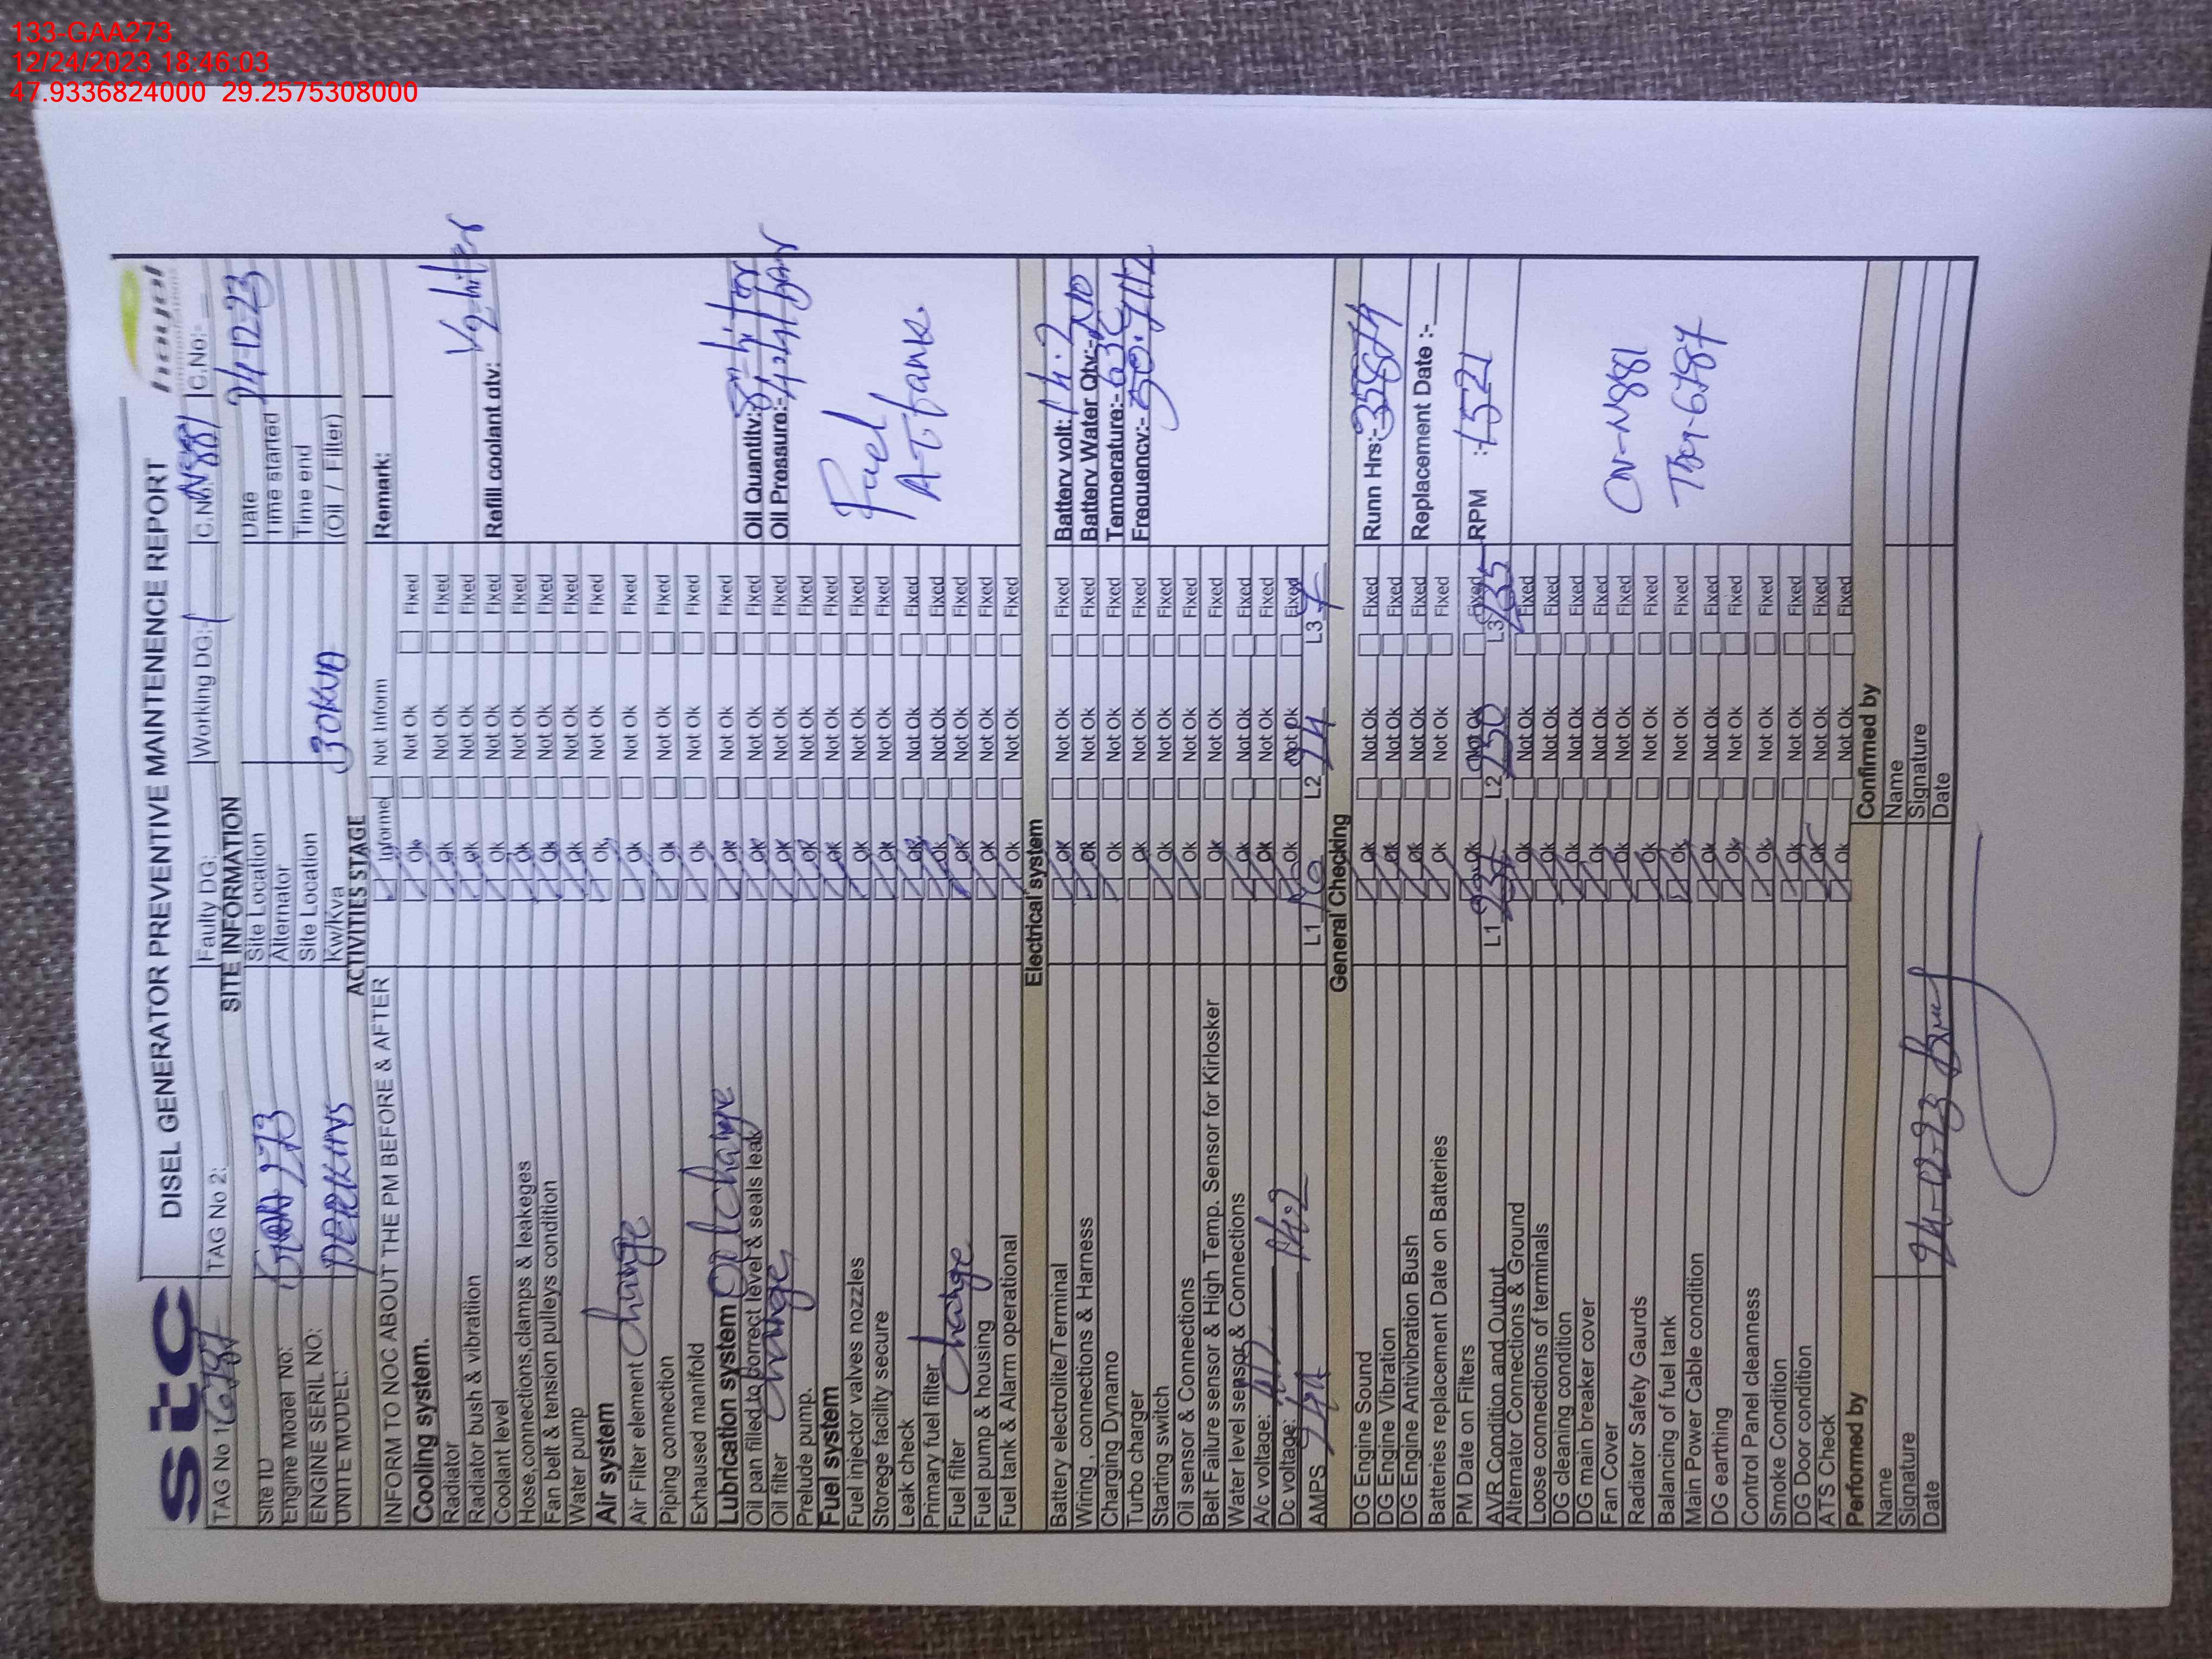 133-GAA273
12/24/2023 18:46:03
47.9336824000 29.2575308000
stc
DISEL GENERATOR PREVENTIVE MAINTENENCE REPORT
TAG No 1 6787 TAG No 2: Faulty DG: Working DG: C.No: N881 C.No:-
SITE INFORMATION
Site ID GAA 273 Site Location Date 24-12-23
Engine Model No: Alternator Time started
ENGINE SERIL NO: Site Location Time end
UNITE MODEL: PERKINS Kw/Kva 30KVA (Oil / Filter)
ACTIVITIES STAGE
INFORM TO NOC ABOUT THE PM BEFORE & AFTER Informe Not Inform Remark:
Cooling system. Ok Not Ok Fixed
Radiator Ok Not Ok Fixed
Radiator bush & vibratiion Ok Not Ok Fixed
Coolant level Ok Not Ok Fixed Refill coolant qty: 1/2 liter
Hose,connections,clamps & leakeges Ok Not Ok Fixed
Fan belt & tension pulleys condition Ok Not Ok Fixed
Water pump Ok Not Ok Fixed
Air system Ok Not Ok Fixed
Air Filter element change Ok Not Ok Fixed
Piping connection Ok Not Ok Fixed
Exhaused manifold Ok Not Ok Fixed
Lubrication system Oil change Ok Not Ok Fixed
Oil pan filled to correct level & seals leak Ok Not Ok Fixed Oil Quantity:
Oil filter change Ok Not Ok Fixed Oil Pressure:-
Prelude pump. Ok Not Ok Fixed
Fuel system Ok Not Ok Fixed Fuel
Fuel injector valves nozzles Ok Not Ok Fixed
Storege facility secure Ok Not Ok Fixed
Leak check Ok Not Ok Fixed
Primary fuel filter Ok Not Ok Fixed
Fuel filter change Ok Not Ok Fixed
Fuel pump & housing Ok Not Ok Fixed
Fuel tank & Alarm operational Ok Not Ok Fixed
Electrical system
Battery electrolite/Terminal Ok Not Ok Fixed Battery volt: 14.2
Wiring , connections & Harness Ok Not Ok Fixed Battery Water Qty:- NO
Charging Dynamo Ok Not Ok Fixed Temperature:- 63C
Turbo charger Ok Not Ok Fixed Frequency:- HZ
Starting switch Ok Not Ok Fixed
Oil sensor & Connections Ok Not Ok Fixed
Belt Failure sensor & High Temp. Sensor for Kirlosker Ok Not Ok Fixed
Water level sensor & Connections Ok Not Ok Fixed
A/c voltage: Ok Not Ok Fixed
Dc voltage: 14.2 Ok Not Ok Fixed
AMPS L1 L2 L3
General Checking
DG Engine Sound Ok Not Ok Fixed Runn Hrs:- 35874
DG Engine Vibration Ok Not Ok Fixed
DG Engine Antivibration Bush Ok Not Ok Fixed Replacement Date :-
Batteries replacement Date on Batteries Ok Not Ok Fixed
PM Date on Filters Ok Not Ok Fixed RPM :- 1521
AVR Condition and Output L1 L2 L3
Alternator Connections & Ground Ok Not Ok Fixed
Loose connections of terminals Ok Not Ok Fixed
DG cleaning condition Ok Not Ok Fixed
DG main breaker cover Ok Not Ok Fixed
Fan Cover Ok Not Ok Fixed CN-N881
Radiator Safety Gaurds Ok Not Ok Fixed
Balancing of fuel tank Ok Not Ok Fixed Tag-6787
Main Power Cable condition Ok Not Ok Fixed
DG earthing Ok Not Ok Fixed
Control Panel cleanness Ok Not Ok Fixed
Smoke Condition Ok Not Ok Fixed
DG Door condition Ok Not Ok Fixed
ATS Check Ok Not Ok Fixed
Performed by Confirmed by
Name Name
Signature Signature
Date 24-12-23 Date